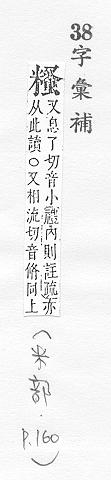 38字彙補
又息了切音小禮內則註疏亦
从此讀○又相流切音脩同上
(米部.
P.160)